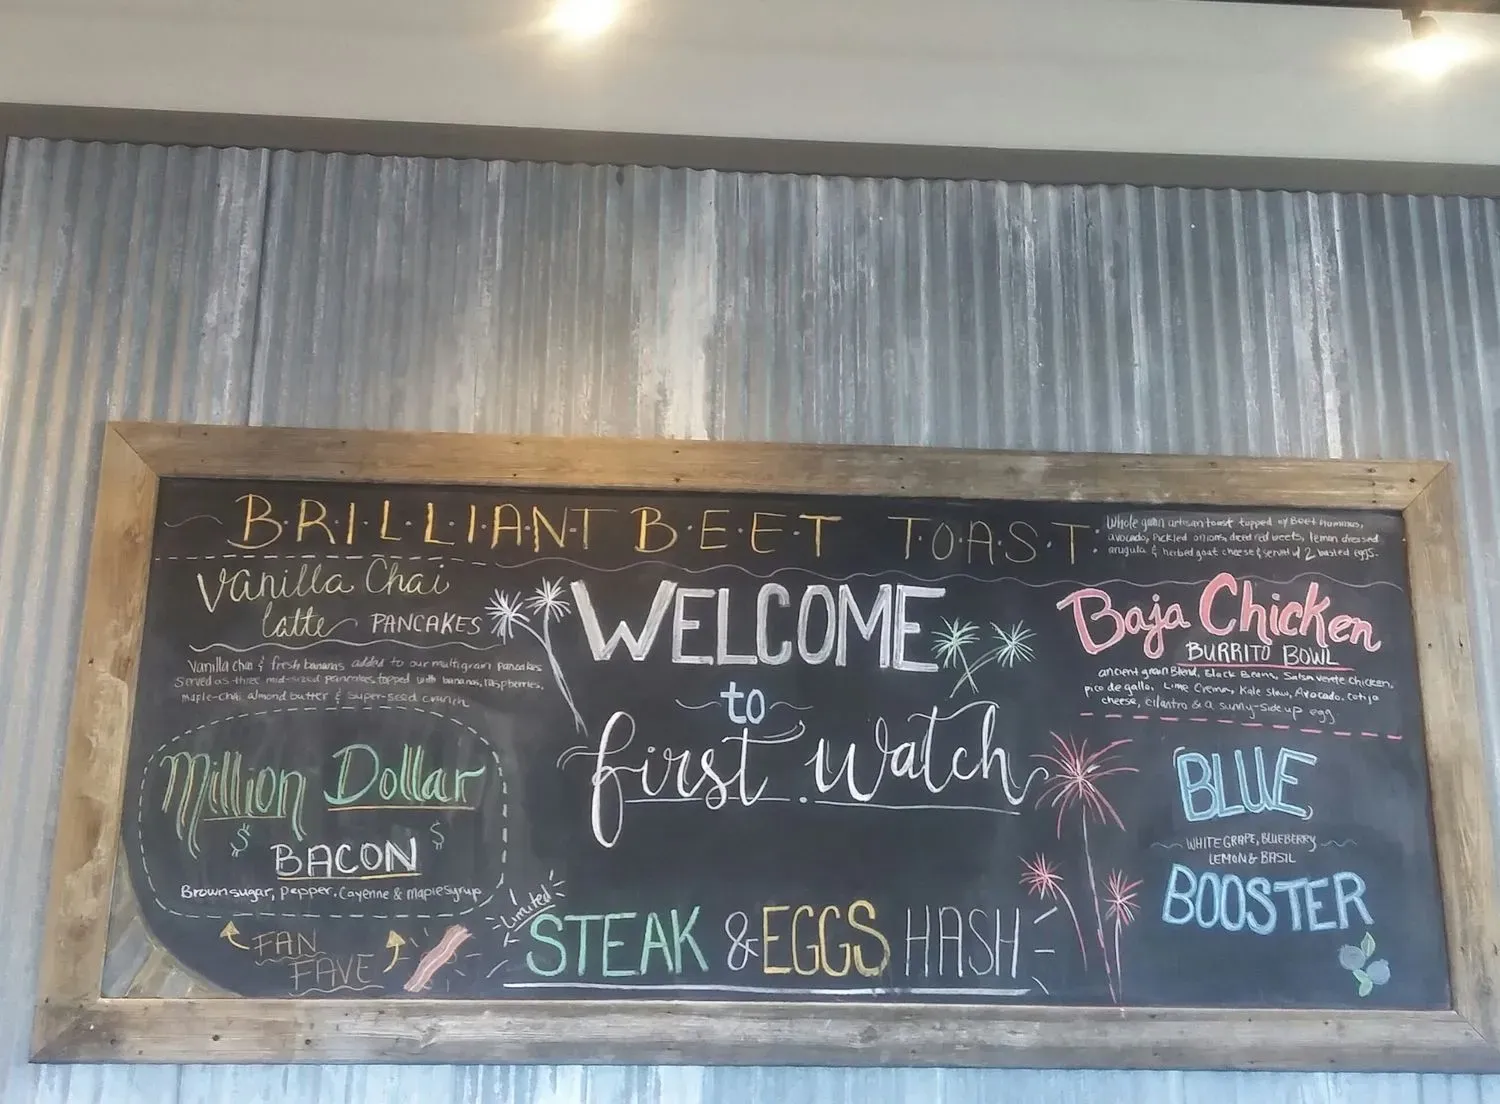 B·R·I·L·L·I·A·N·T B·E·E·T T·O·A·S·T:
Whole grain artisan toast topped w/ Beet hummus,
avocado, pickled onions, diced red beets, lemon dressed
arugula & herbed goat cheese & served w/ 2 basted eggs.
Vanilla Chai
latte PANCAKES
Vanilla chai & fresh bananas added to our multigrain pancakes
Served as three mid-sized pancakes topped with bananas, raspberries,
maple-chai almond butter & super-seed crunch
Million Dollar
$ $
BACON
Brown sugar, pepper, Cayenne & maple syrup
FAN
FAVE
WELCOME
to
first watch
Limited
STEAK & EGGS HASH
Baja Chicken
BURRITO BOWL
ancient grain Blend, Black Beans, Salsa verde chicken,
pico de gallo, Lime Crema, Kale slaw, Avocado, cotija
cheese, cilantro & a sunny-side up egg
BLUE
WHITE GRAPE, BLUEBERRY
LEMON & BASIL
BOOSTER